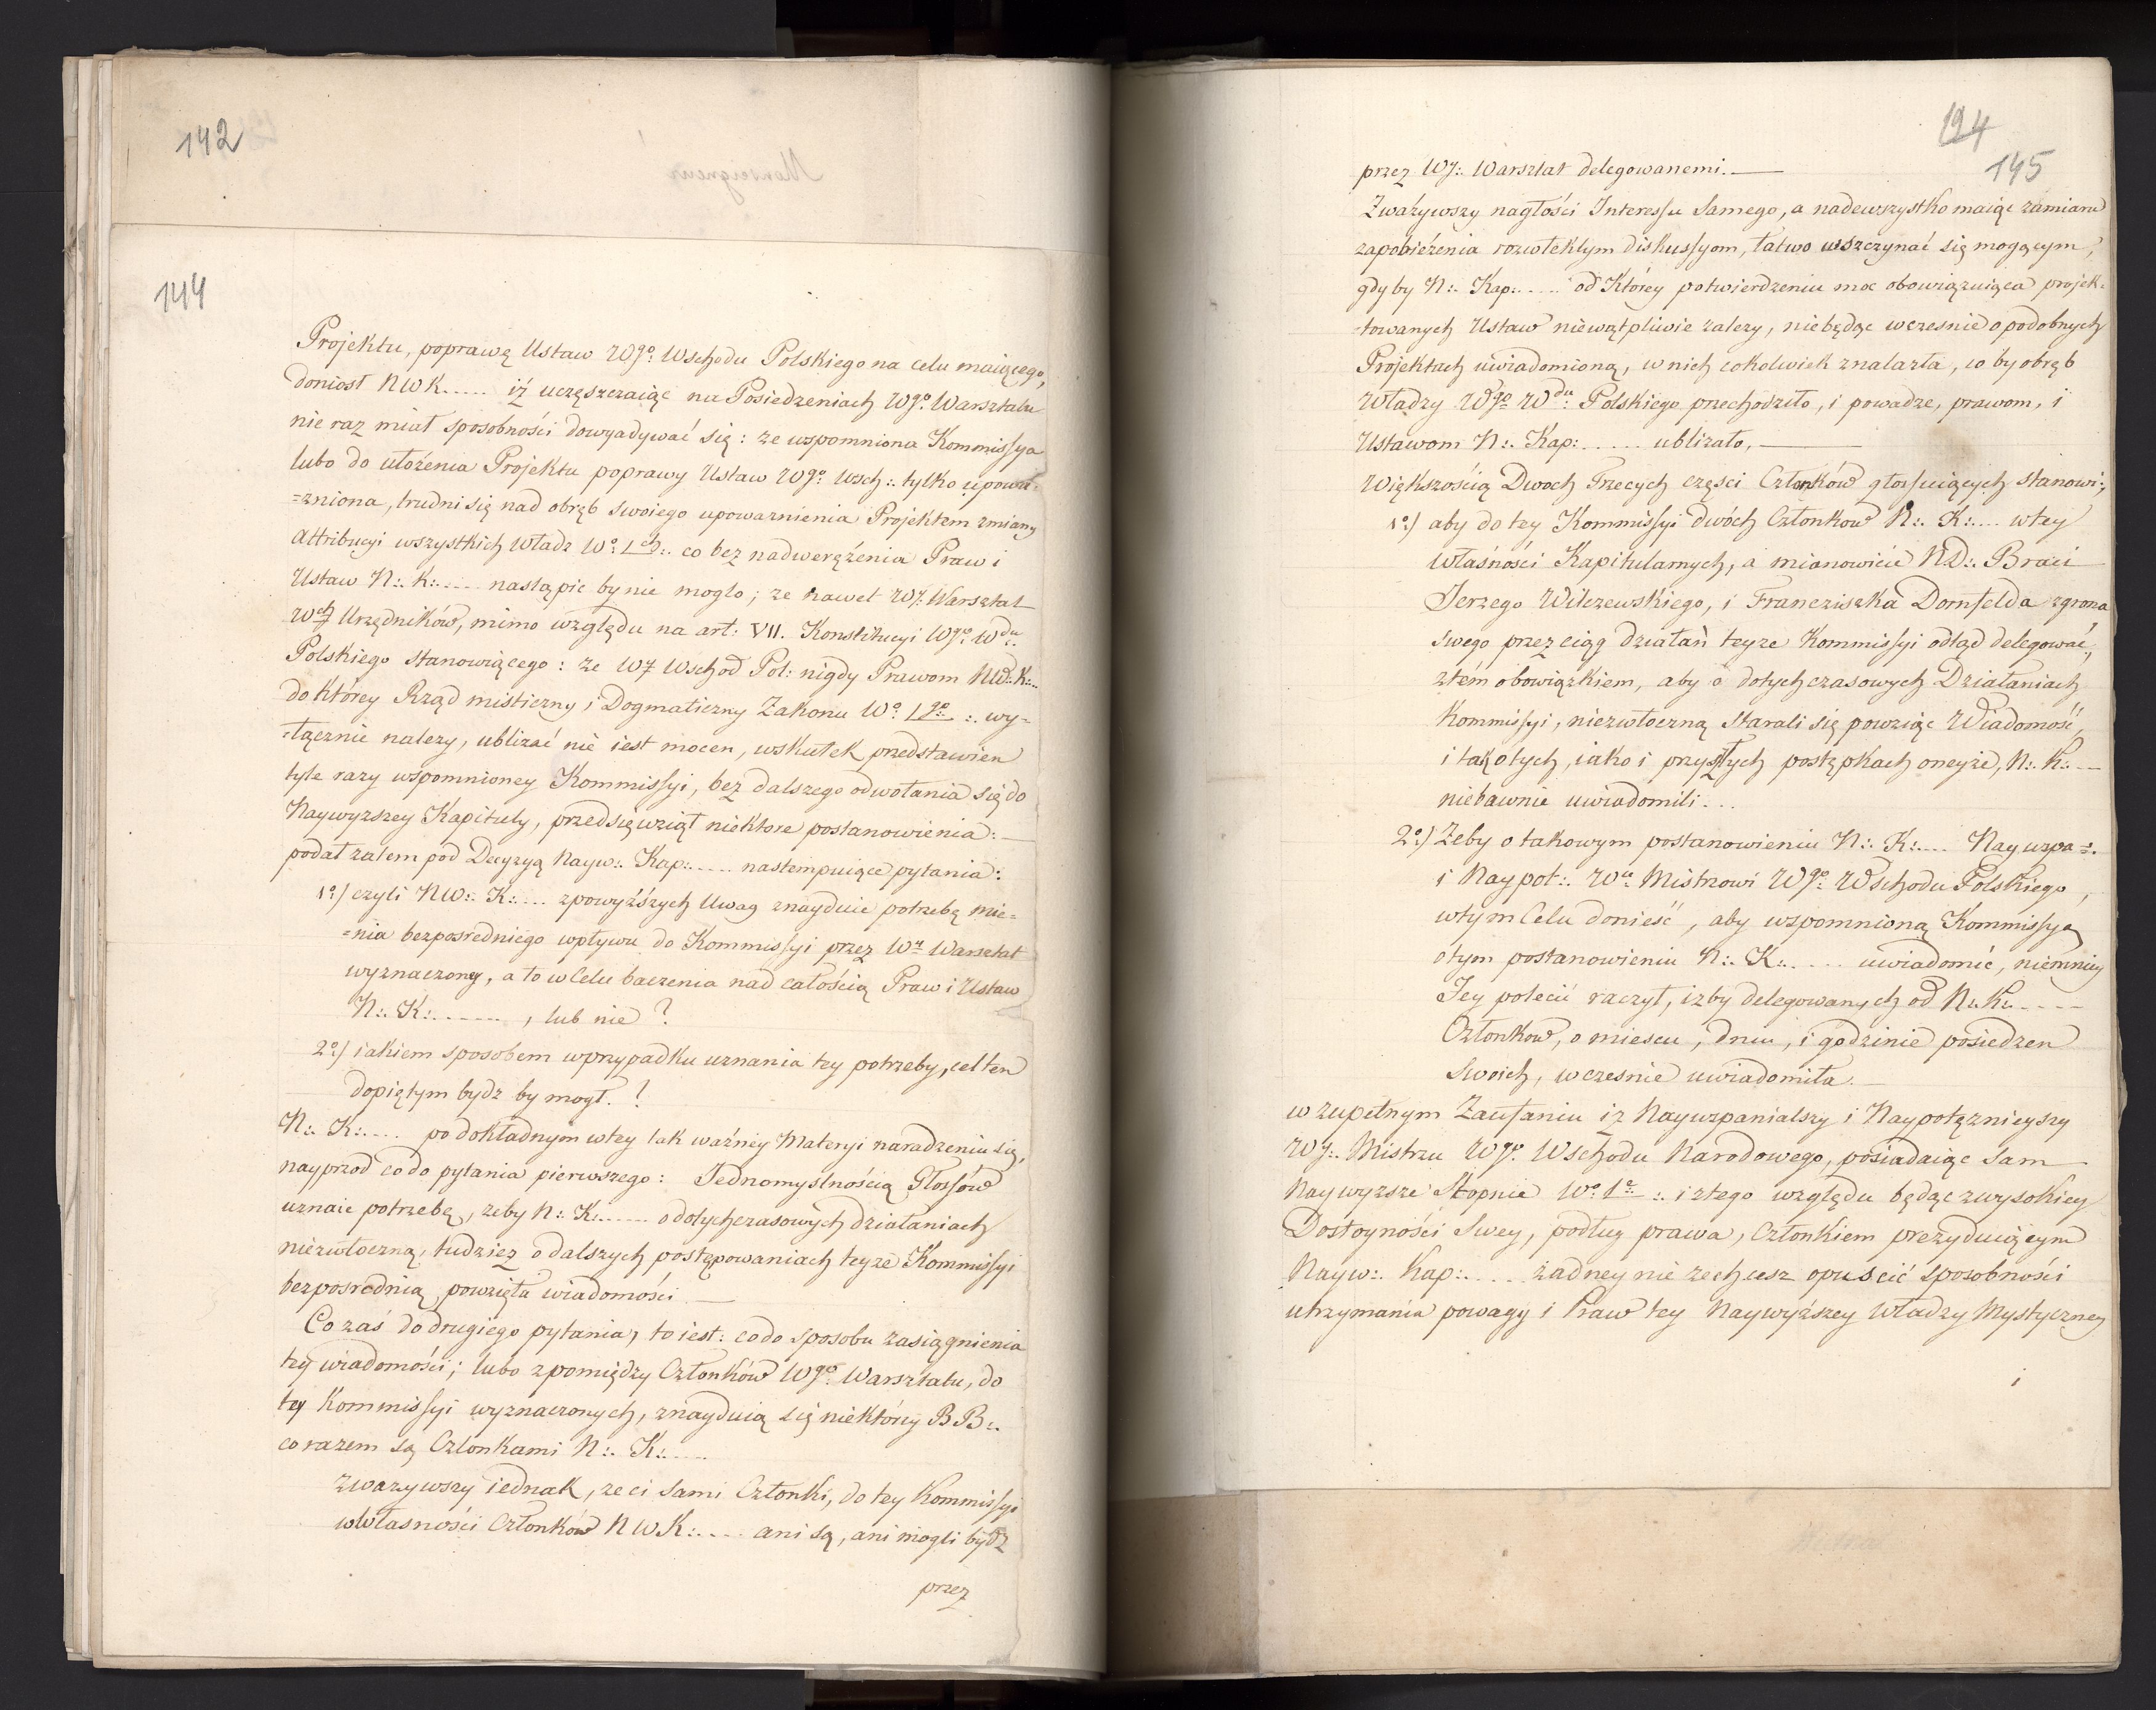 142
144
Projektu, poprawę Ustaw Wgo: Wschodu Polskiego na celu maiącego,
doniosł NWK..... iż uczęszczaiąc na Posiedzeniach Wgo: Warsztatu
nie raz miał sposobności dowyadywać się: że wspomniona Kommissya
lubo do ułożenia Projektu poprawy Ustaw Wgo: Wsch:. tylko upowa=
=żniona, trudni się nad obręb swoiego upoważnienia Projektem zmiany
Attribucyi wszystkich Władz Wo: Lch:. co bez nadwerężenia Praw i
Ustaw N:. K:..... nastąpić by nie mogło; że nawet W7: Warsztat
Wch Urzędników, mimo względu na art: VII. Konstitucyi Wgo: Wdu:
Polskiego stanowiącego: że W7 Wschod Pol: nigdy Prawom NW:. K:...
do którey Rząd misticzny i Dogmaticzny Zakonu Wo: Lgo:. wy=
=łącznie należy, ubliżać nie iest mocen, wskutek przedstawien
tyle razy wspomnioney Kommissyi, bez dalszego odwołania się do
Naywyższey Kapituły, przedsięwziął niektore postanowienia:
podał zatem pod Decyzyą Nayw:. Kap:..... nastempuiące pytania:
1o:) czyli NW:. K:.... z powyższych Uwag znayduie potrzebę mie=
=nia bezposredniego wpływu do Kommissyi przez Wy Warsztat
wyznaczoney, a to w Celu baczenia nad całością Praw i Ustaw
N:. K:......., lub nie?
2o:) iakiem sposobem w przypadku uznania tey potrzeby, cel ten
dopiętym bydz by mogł.!
N:. K:.... po dokładnym w tey tak ważney Materyi naradzeniu się,
nayprzod co do pytania pierwszego: Jednomyslnością Głossów
uznaie potrzebę, żeby N:. K:..... o dotychczasowych działaniach
niezwłoczną, tudziez o dalszych postępowaniach teyże Kommissyi
bezposrednią, powzięła wiadomości.
Co zaś do drugiego pytania, to iest: co do sposobu zasiągnienia
tey wiadomości; lubo z pomiędzy Członków Wgo: Warsztatu, do
tey Kommissyi wyznaczonych, znayduią się niektórzy BB:.
co razem są Członkami N:. K:.....
zwazywszy iednak, że ci sami Członki, do tey Kommissyi
w własności Członków NWK:.... ani są, ani mogli bydz
przez
124
145
przez W7:. Warsztat delegowanemi.
Zważywszy nagłości Interessu samego, a nadewszystko maiąc zamiaru
zapobieżenia rozwlekłym diskussyom, łatwo wszczynać się mogącym,
gdyby N:. Kap:..... od Którey potwierdzeniu moc obowiązuiąca projek=
=towanych Ustaw niewątpliwie zalezy, niebędąc wczesnie o podobnych
Projektach uwiadomioną, w nich cokolwiek znalazła, co by obręb
Władzy Wgo Wdu: Polskiego przechodziło, i powadze, prawom, i
Ustawom N:. Kap:..... ubliżało,
Większością Dwoch Trzecych części Członków głossuiących stanowi:,
1o:) aby do tey Kommissyi dwóch Członkow N:. K:.... w tey
własności Kapitularnych, a mianowicie ND:. Braci
Jerzego Wilczewskiego, i Franciszka Dornfelda z grona
swego przez ciąg działań teyże Kommissyi odtąd delegować,
z tém obowiązkiem, aby o dotychczasowych Działaniach
Kommissyi, niezwłoczną starali się powziąć Wiadomość,
i tak o tych, iako i przyszłych postępkach oneyże, N:. K:....
niebawnie uwiadomili...
2o:) Żeby o takowym postanowieniu N:. K:.... Naywspa=:.
i Naypot:. Wu: Mistrzowi Wgo: Wschodu Polskiego,
w tym Celu donieść, aby wspomnioną Kommissyą
o tym postanowieniu N:. K:..... uwiadomić, niemniey
Jey polecić raczył, iżby delegowanych od N:. K:.....
Członkow, o miescu, dniu, i godzinie posiedzen
swoich, wczesnie uwiadomiła.
w zupełnym Zaufaniu iż Naywspanialszy i Naypotężnieyszy
W7:. Mistrzu Wgo: Wschodu Narodowego, posiadaiąc sam
Naywyższe Stopnie Wo: La:. i z tego względu będąc z wysokiey
Dostoyności Swey, podług prawa, Członkiem prezyduiącym
Nayw:. Kap:.... żadney nie zechcesz opuscić sposobności
utrzymania powagi i Praw tey Naywyższey Władzy Mystyczney
i